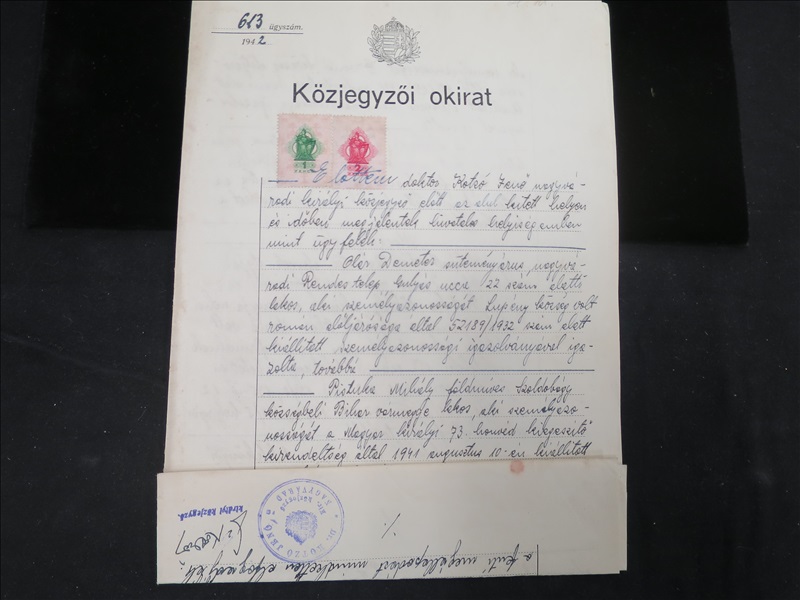 613 ügyszám.
1942
Közjegyzői okirat
1 2
Előttem doktor Kotzó Jenő nagyvá-
radi királyi közjegyző előtt az alul kitett helyen
és időben megjelentek hivatalos helyiségemben
mint ügyfelek:
Olár Demeter süteményárus, nagyvá-
radi Rendes telep Gulyás ucca 22 szám alatti
lakos, aki személyazonosságát Lupény község volt
román elöljárósága által 52189/1932 szám alatt
kiállított személyazonossági igazolványával iga-
zolta, továbbá
Mihály földmives Szoldobágy
községbeli Bihar varmegye lakos, aki személyazo-
nosságát a Magyar királyi 73. honvéd kiegészitő
kirendeltség által 1941 augusztus 10-én kiállított
a fenti megállapodást mindketten
%
Dr. KOTZÓ JENŐ
kir. közjegyző
NAGYVÁRAD
királyi közjegyző.